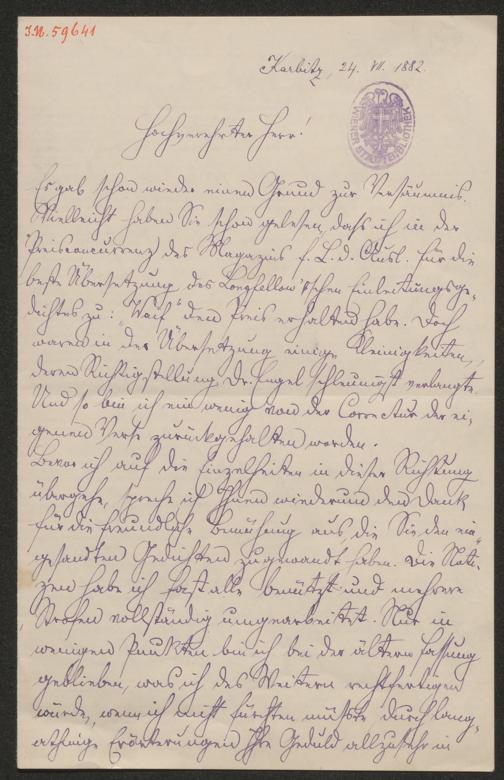 J.N. 59641
Karbitz, 24. VII. 1882.
WIENER STADTBIBLIOTHEK
Hochverehrter Herr!
Es gab schon wieder einen Grund zur Versäumnis.
Vielleicht haben Sie schon gelesen, daß ich in der
Preisconcurrenz des Magazins f. L. d. Ausl. für die
beste Übersetzung des Longfellow'schen Einleitungsge-
dichtes zu: "Waif" den Preis erhalten habe. Doch
waren in der Übersetzung einige Kleinigkeiten,
deren Richtigstellung Dr. Engel schleunigst verlangte.
Und so bin ich ein wenig von der Correctur der ei-
genen Verse zurückgehalten worden.
Bevor ich auf die Einzelheiten in dieser Richtung
übergehe, spreche ich Ihnen wiederum den Dank
für die freundliche Bemühung aus, die Sie den ein-
gesandten Gedichten zugewandt haben. Die Noti-
zen habe ich fast alle benützt und mehrere
Strofen vollständig umgearbeitet. Nur in
wenigen Punkten bin ich bei der ältern Fassung
geblieben, was ich des Weitern rechtfertigen
würde, wenn ich nicht fürchten müsste durch lang-
athmige Erörterungen Ihre Geduld allzusehr in